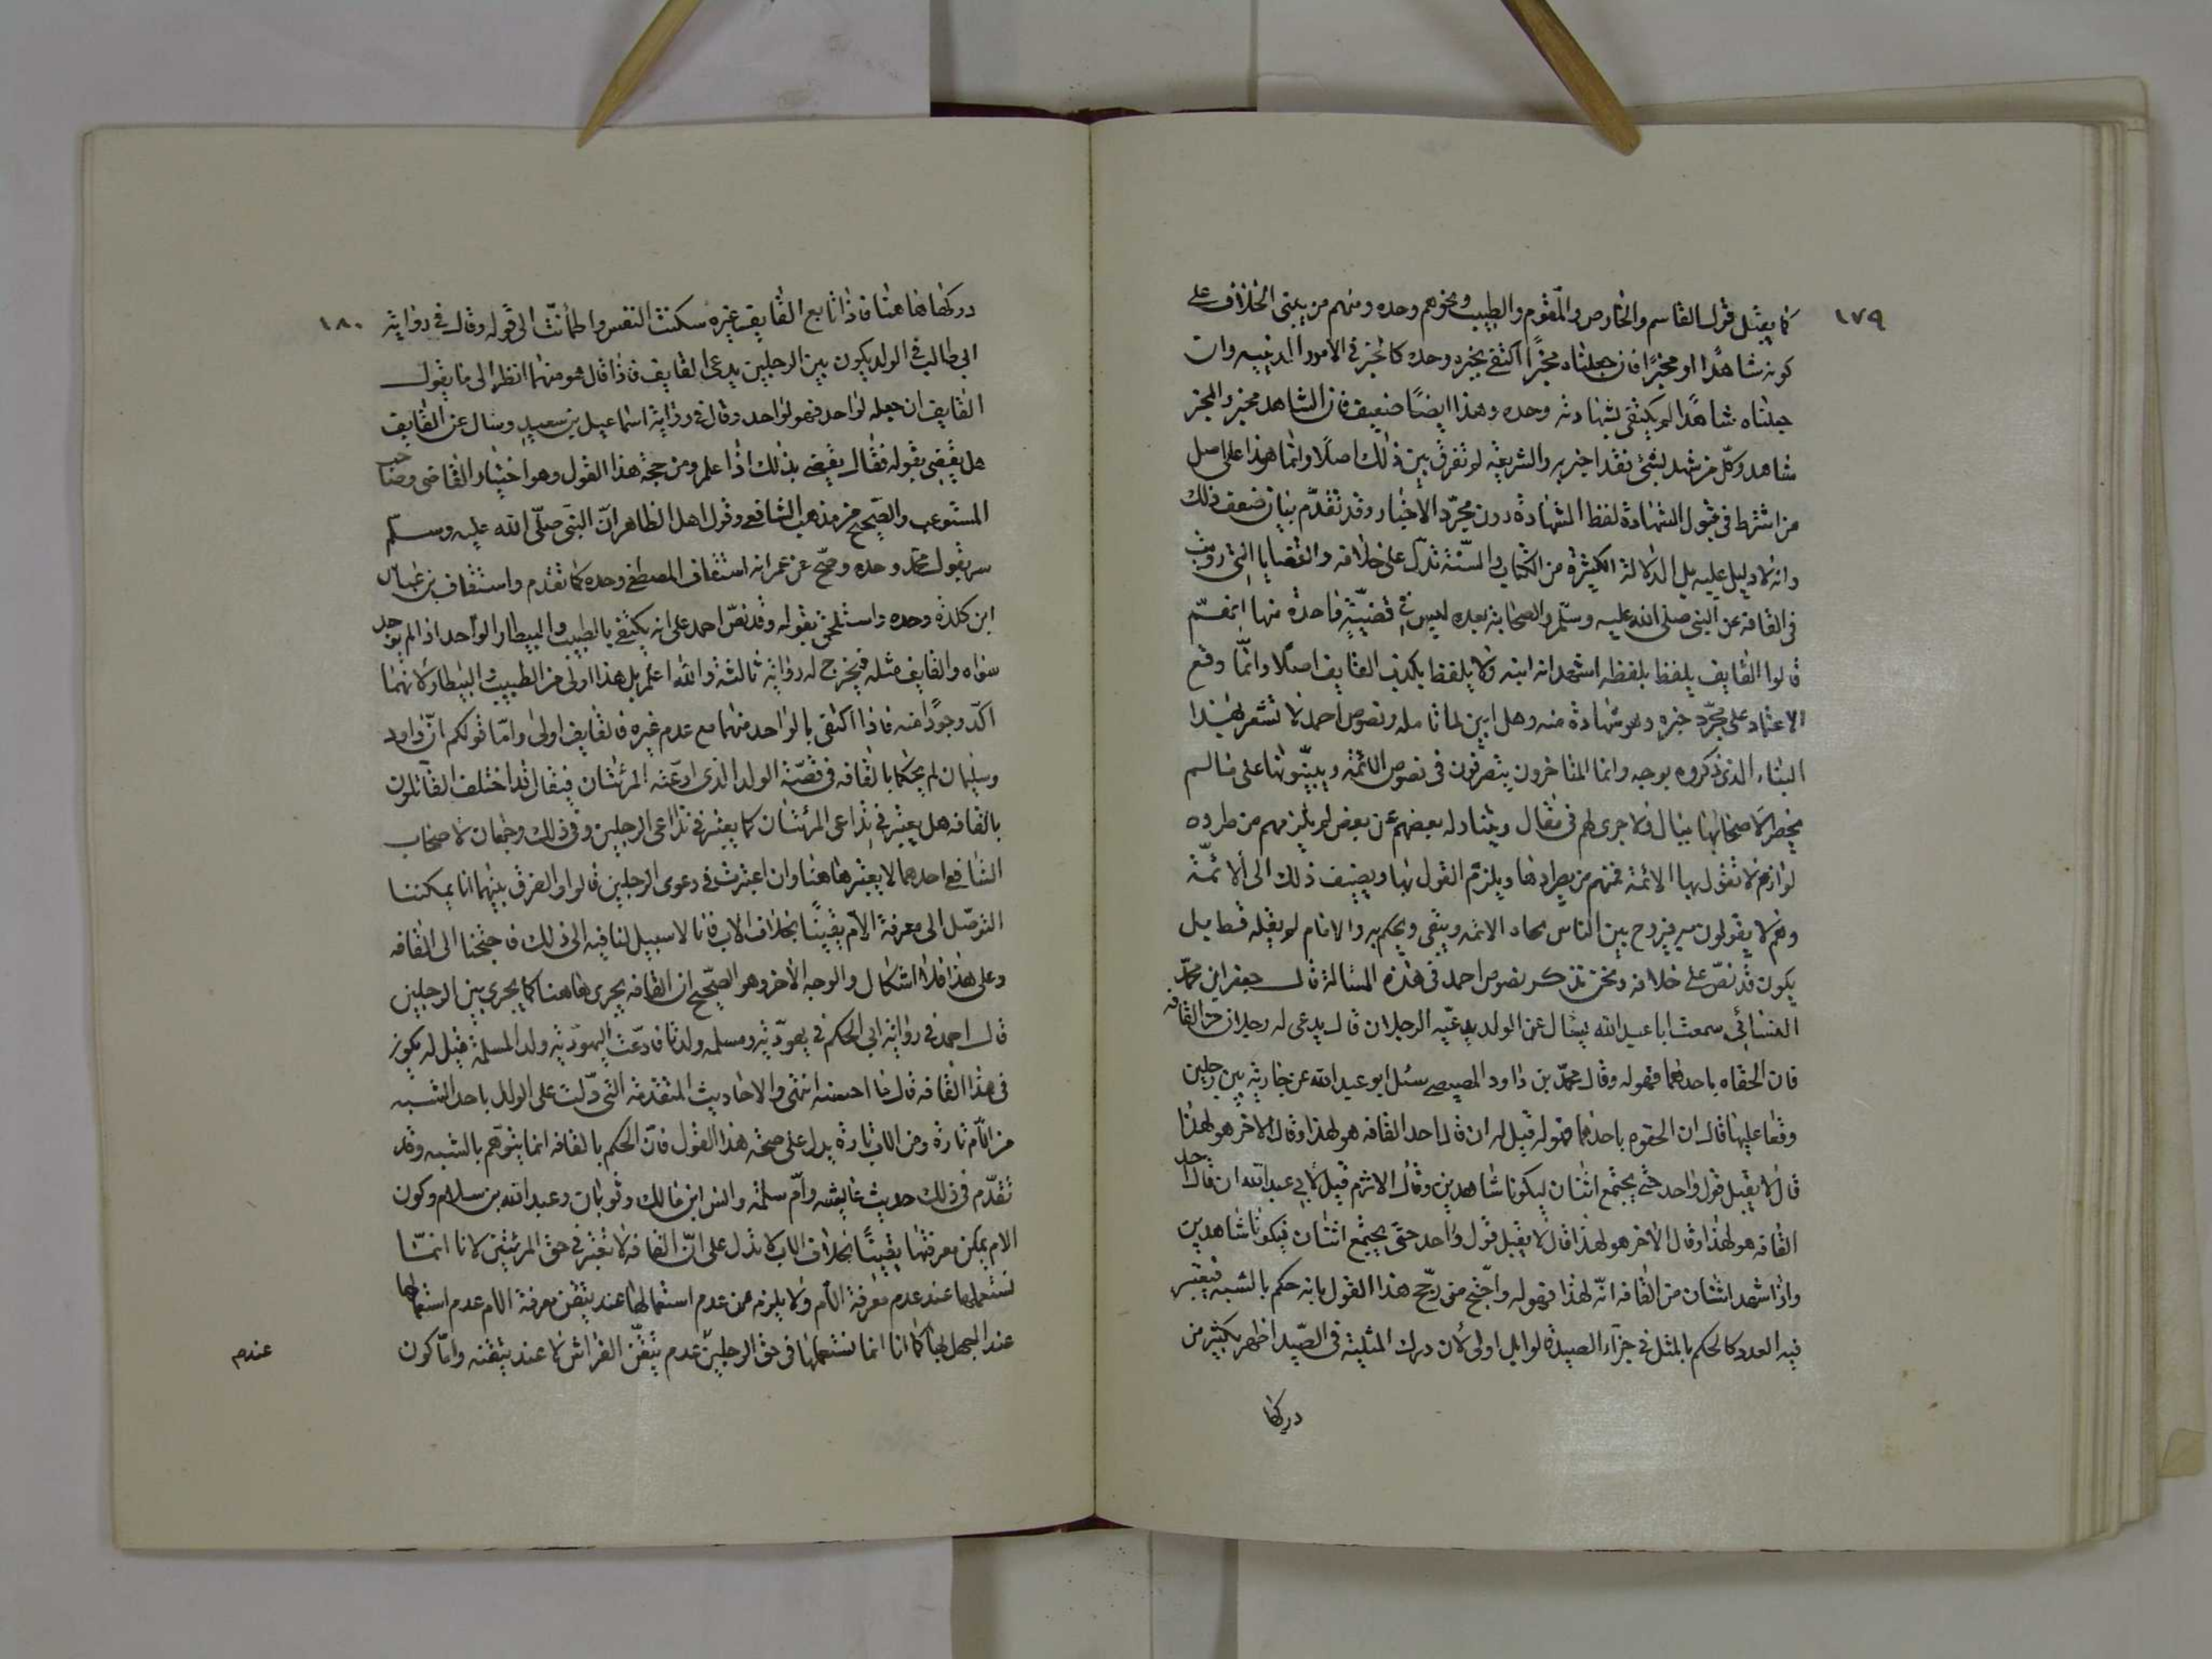 ١٧٩
كما يقبل قول القاسم والخارص والمقوم والطبيب ونحوهم وحده ومنهم من يبنى الخلاف على
كونه شاهدًا او مخبرًا فان جعلناه مخبرًا اكتفى بخبره وحده كالخبر فى الامور الدينيه وان
جعلناه شاهدًا لم يكتفى بشهادته وحده وهذا ايضًا ضعيف فان الشاهد مخبر والمخبر
شاهد وكل من شهد بشئ فقد اخبر به والشريعة لم تفرق بين ذلك اصلًا وانما هذا على اصل
من اشترط فى قبول الشهادة لفظ الشهادة دون مجرد الاخبار وقد تقدم بيان ضعف ذلك
وانه لا دليل عليه بل الدلالة الكثيرة من الكتاب والسنة تدل على خلافه والقضايا التى رويت
فى القافه عن النبى صلى الله عليه وسلم والصحابة بعده ليس فى قضية واحدة منها انهم
قالوا القايف يلفظ بلفظه اشهد انه ابنه ولا يلفظ بكذب القايف اصلًا وانما وقع
الاعتماد على مجرد خبره وهو شهادة منه وهل ابين لما تامله ونصوص احمد لا تشعر بهذا
البناء الذى ذكروه بوجه وانما المتاخرون يتصرفون فى نصوص الائمة ويبنونها على ما لم
يخطر لاصحابها ببال ولا جرى لهم فى مقال ويتناوله بعضهم عن بعض لم يلزمهم من طرده
لوازم لا تقول بها الائمة فمنهم من يطردها ويلزم القول بها ويضيف ذلك الى الائمّة
وهم لا يقولون به فيروج بين الناس بجاه الائمه ويفتى ويحكم به والامام لم يقله قط بل
يكون قد نصّ على خلافه ونحن نذكر نصوص احمد فى هذه المسالة قال جعفر ابن محمد
النسائى سمعت ابا عبد الله يسال عن الولد يدعيه الرجلان قال يدعى له رجلان من القافه
فان الحقاه باحدهما فهو له وقال محمد بن داود المصيصى سئل ابو عبد الله عن جارية بين رجلين
وقعا عليها قال ان الحقوه باحدهما فهو له قيل له ان قال احد القافه هو لهذا وقال الاخر هو لهذا
قال لا يقبل قول واحد حتى يجتمع اثنان ليكونا شاهدين وقال الاثرم قيل لابى عبد الله ان قال احد
القافه هو لهذا وقال الاخر هو لهذا قال لا يقبل قول واحد حتى يجتمع اثنان فيكونا شاهدين
واذا شهد اثنان من القافه انه لهذا فهو له واحتج من رجح هذا القول بانه حكم بالشبه فيعتبر
فيه العدد كالحكم بالمثل فى جزاء الصيد قالوا بل اولى لان درك المثلية فى الصيد اظهر بكثير من
دركها
١٨٠
دركها هاهنا فاذا تابع القايف غيره سكنت النفس واطمأنت الى قوله وقال فى رواية
ابى طالب فى الولد يكون بين الرجلين يدعى القايف فاذا قال هو منهما انظر الى ما يقول
القايف ان جعله لواحد فهو لواحد وقال فى رواية اسماعيل بن سعيد وسال عن القايف
هل يقضى بقوله فقال يقضى بذلك اذا علم ومن حجة هذا القول وهو اختيار القاضى وصاحب
المستوعب والصحيح من مذهب الشافعى وقول اهل الظاهر ان النبى صلى الله عليه وسلم
سر بقول محمد وحده وصح عن عمر انه استقاف المصطلقى وحده كما تقدم واستقاف بن عباس
ابن كلدة وحده واستلحق بقوله وقد نصّ احمد على انه يكتفى بالطبيب والبيطار الواحد اذا لم يوجد
سواه والقايف مثله فيخرج له رواية ثالثة والله اعلم بل هذا اولى من الطبيب والبيطار لانهما
اكثر وجودًا منه فاذا اكتفى بالواحد منهما مع عدم غيره فالقايف اولى وامّا قولكم انّ داود
وسليمان لم يحكما بالقافه فى قصة الولد الذى ادعته المرئتان فيقال قد اختلف القائلون
بالقافه هل يعتبر فى تداعى المرئتان كما يعتبر فى تداعى الرجلين وفى ذلك وجهان لاصحاب
الشافعى احدهما لا يعتبر هاهنا وان اعتبرت فى دعوى الرجلين قالوا والفرق بينهما انا يمكننا
التوصل الى معرفة الام يقينًا بخلاف الاب فانا لا سبيل لنا فيه الى ذلك فاحتجنا الى القافه
وعلى هذا فلا اشكال والوجه الاخر وهو الصحيح ان القافه يجرى هاهنا كما يجرى بين الرجلين
قال احمد فى رواية ابى الحكم فى يهوديّة ومسلمه ولدتا فادعت اليهودية ولد المسلمة قيل له يكون
فى هذا القافه قال ما احسنه انتهى والاحاديث المتقدمة التى دلت على الولد ياخذ الشبه
من الام تارة ومن الاب تارة يدل على صحة هذا القول فان الحكم بالقافه انما يتوهم بالشبه وقد
تقدم فى ذلك حديث عايشه وام سلمة وانس ابن مالك وثوبان وعبد الله بن سلام وكون
الام يمكن معرفتها يقينًا بخلاف الاب لا تدل على ان القافه لا تعتبر فى حق المرئتين لانا انمّا
نستعملها عند عدم معرفة الام ولا يلزم من عدم استعمالها عند تيقن معرفة الام عدم استعمالها
عند الجهل بها كما انا انما نستعملها فى حق الرجلين عدم تيقن الفراش لا عند تيقنه وامّا كون
عندم